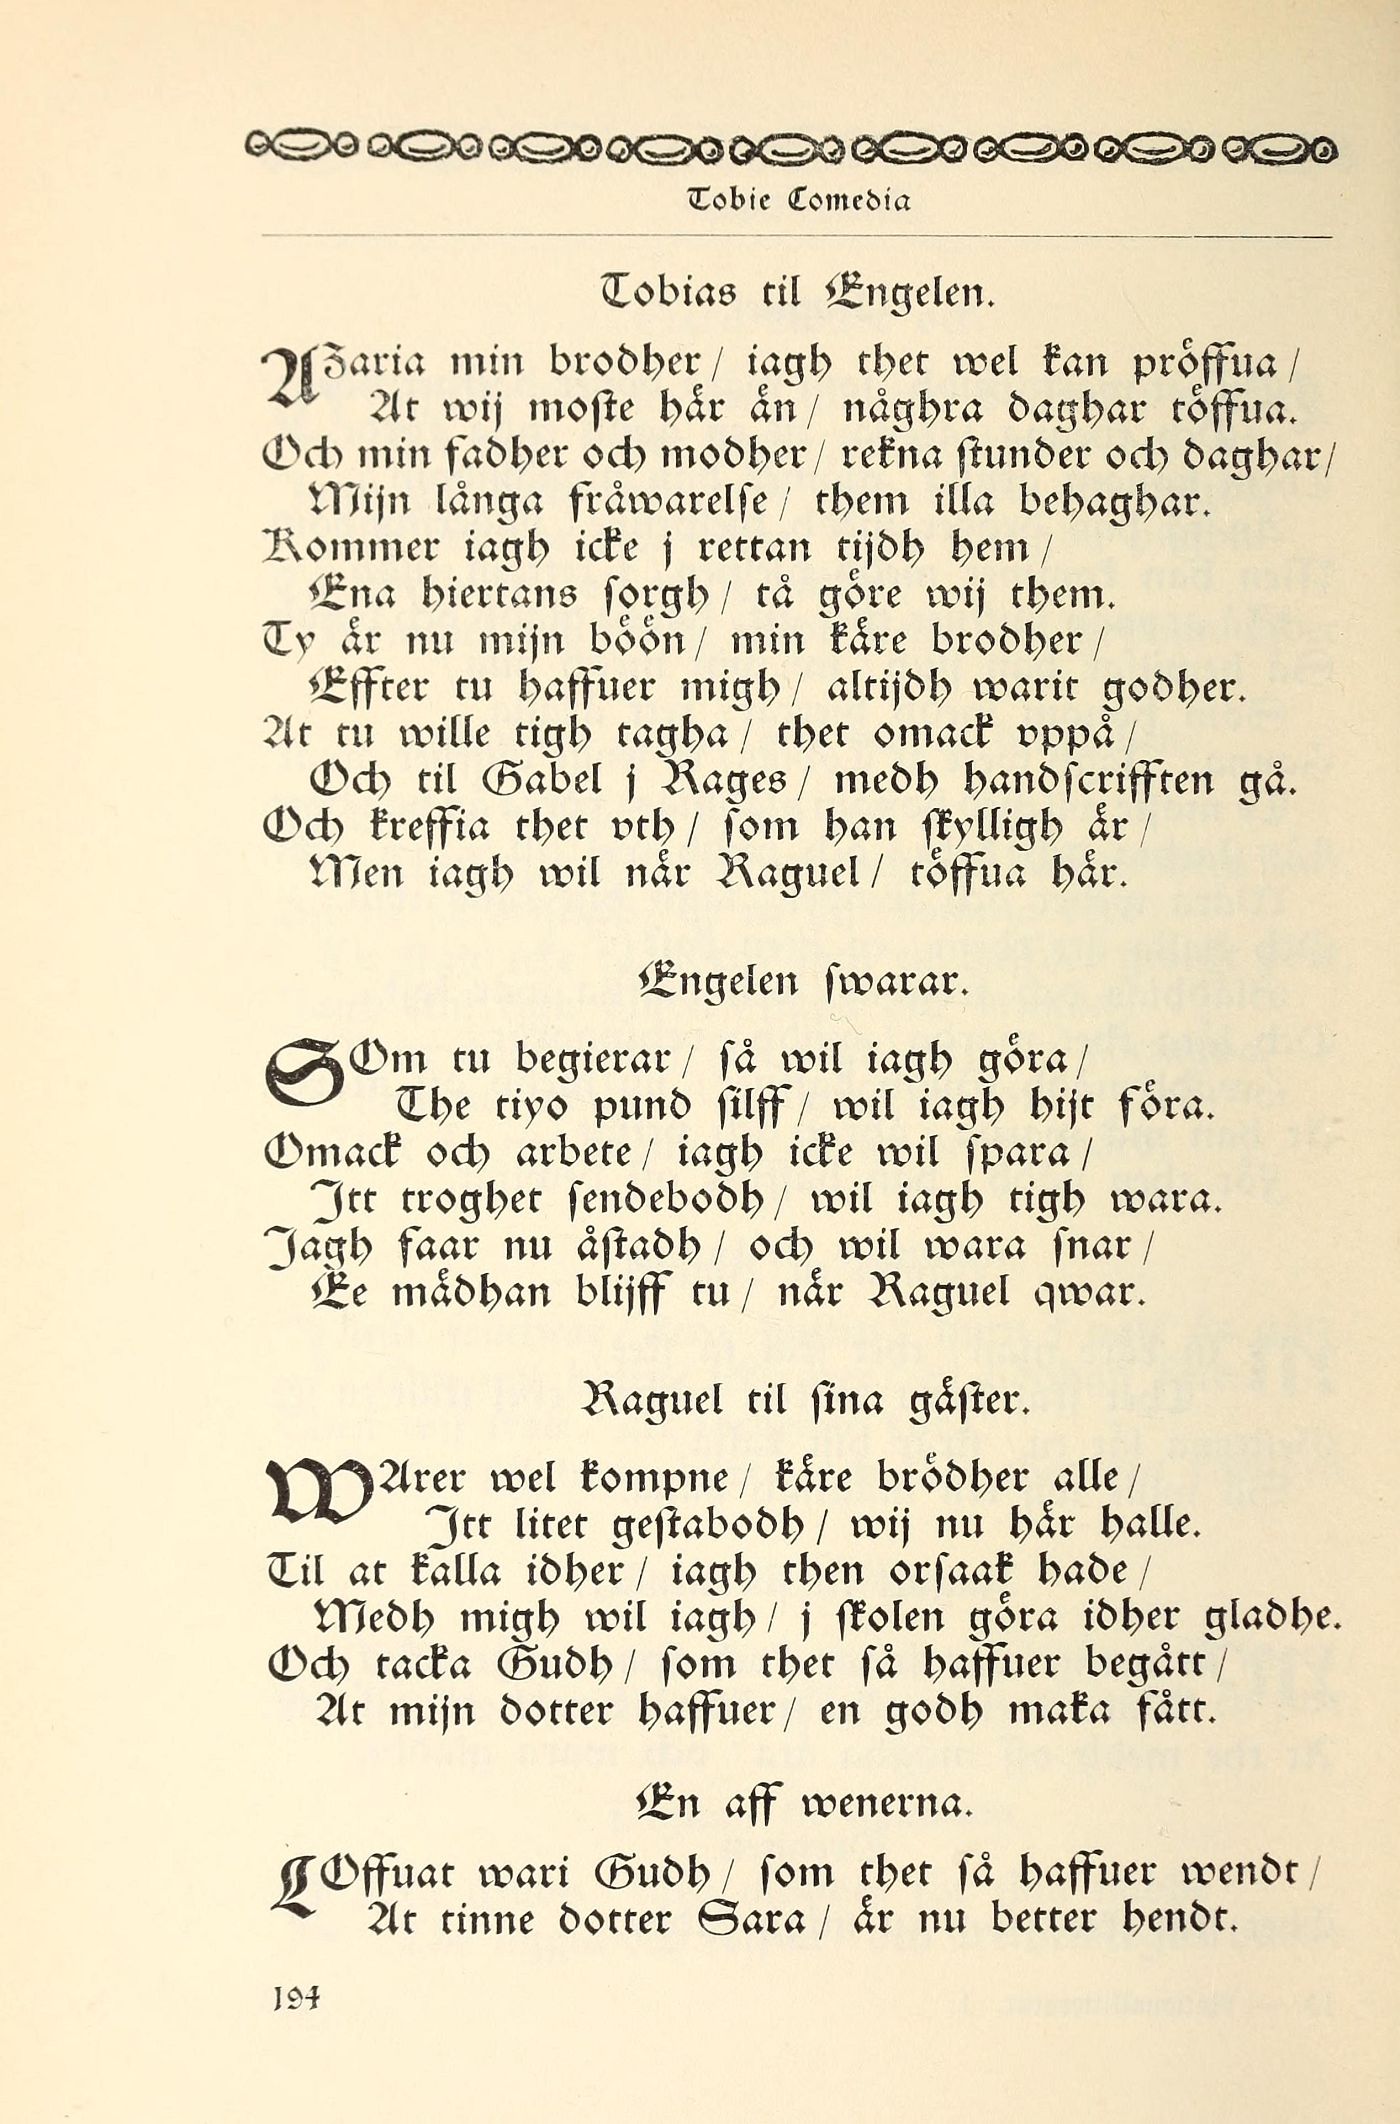 Tobie Comedia
Tobias til Engelen.
AZaria min brodher / iagh thet wel kan pröffua /
At wij moste här än / någhra daghar töffua.
Och min fadher och modher / rekna stunder och daghar /
Mijn långa fråwarelse / them illa behaghar.
Kommer iagh icke j rettan tijdh hem /
Ena hiertans sorgh / tå göre wij them.
Ty är nu mijn böön / min käre brodher /
Effter tu haffuer migh / altijdh warit godher.
At tu wille tigh tagha / thet omack vppå /
Och til Gabel j Rages / medh handscrifften gå.
Och kreffia thet vth / som han skylligh är /
Men iagh wil när Raguel / töffua här.
Engelen swarar.
SOm tu begierar / så wil iagh göra /
The tiyo pund silff / wil iagh hijt föra.
Omack och arbete / iagh icke wil spara /
Itt troghet sendebodh / wil iagh tigh wara.
Jagh faar nu åstadh / och wil wara snar /
Ee mädhan blijff tu / när Raguel qwar.
Raguel til sina gäster.
WArer wel kompne / käre brödher alle /
Itt litet gestabodh / wij nu här halle.
Til at kalla idher / iagh then orsaak hade /
Medh migh wil iagh / j skolen göra idher gladhe.
Och tacka Gudh / som thet så haffuer begått /
At mijn dotter haffuer / en godh maka fått.
En aff wenerna.
LOffuat wari Gudh / som thet så haffuer wendt /
At tinne dotter Sara / är nu better hendt.
194